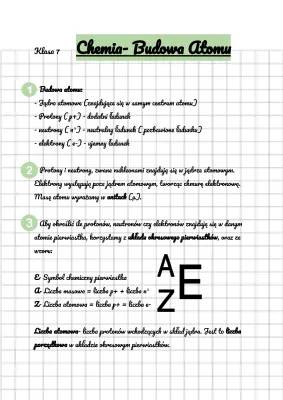 Klasa 7
Chemia- Budowa Atomu
1 Budowa atomu:
- Jądro atomowe (znajdujące się w samym centrum atomu)
- Protony ( p+) - dodatni ładunek
- neutrony ( n°) - neutralny ładunek ( pozbawione ładunku)
- elektrony ( e-) - ujemny ładunek
2 Protony i neutrony, zwane nukleonami znajdują się w jądrze atomowym.
Elektrony występują poza jądrem atomowym, tworząc chmurę elektronową.
Masę atomu wyrażamy w unitach (µ).
3 Aby określić ile protonów, neutronów czy elektronów znajduje się w danym
atomie pierwiastka, korzystamy z układu okresowego pierwiastków, oraz ze
wzoru:
A
E
Z
E- Symbol chemiczny pierwiastka
A- Liczba masowa = liczba p+ + liczba n°
Z- Liczba atomowa = liczba p+ = liczba e-
Liczba atomowa- liczba protonów wchodzących w skład jądra. Jest to liczba
porządkowa w układzie okresowym pierwiastków.